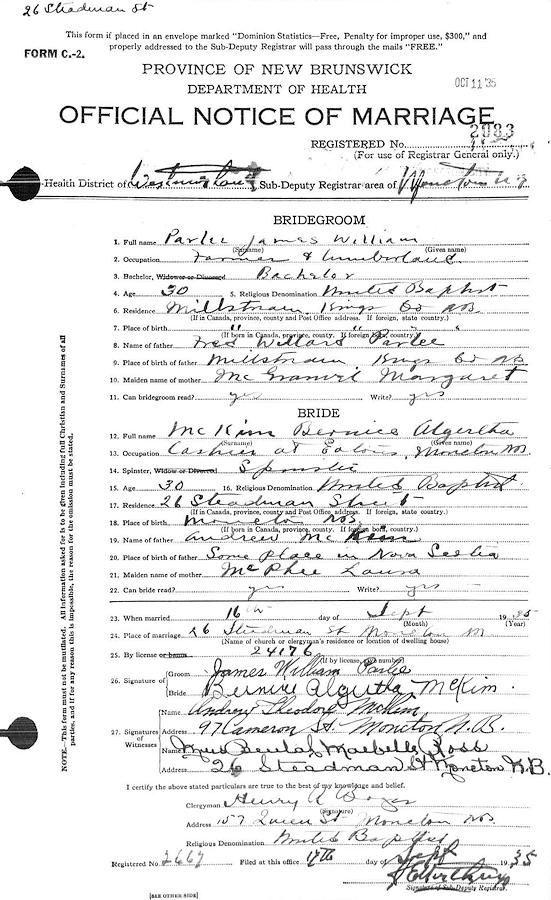 26 Steadman St
This form if placed in an envelope marked "Dominion Statistics—Free, Penalty for improper use, $300," and
FORM C.-2.
properly addressed to the Sub-Deputy Registrar will pass through the mails "FREE."
PROVINCE OF NEW BRUNSWICK
DEPARTMENT OF HEALTH
OCT 11 '35
OFFICIAL NOTICE OF MARRIAGE
REGISTERED No. 2083
(For use of Registrar General only.)
-Health District of Sub-Deputy Registrar area of Moncton
BRIDEGROOM
1. Full name Parlee James William
(Surname) (Given name)
2. Occupation Farmer &
3. Bachelor, Widower or Divorced Bachelor
4. Age 30 5. Religious Denomination United Baptist
6. Residence Millstream Kings Co NB
(If in Canada, province, county and Post Office address. If foreign, state country.)
7. Place of birth " " "
(If born in Canada, province, county. If foreign born, country.)
8. Name of father Fred Willard Parlee
9. Place of birth of father Millstream Kings Co NB
10. Maiden name of mother Margaret
11. Can bridegroom read? yes Write? yes
BRIDE
12. Full name McKim Bernice Algertha
(Surname) (Given name)
13. Occupation Cashier at Eatons, Moncton NB
14. Spinster, Widow or Divorced Spinster
15. Age 30 16. Religious Denomination United Baptist
17. Residence 26 Steadman Street
(If in Canada, province, county and Post Office address. If foreign, state country.)
18. Place of birth Moncton NB
(If born in Canada, province, county. If foreign born, country.)
19. Name of father Andrew McKim
20. Place of birth of father Some place in Nova Scotia
21. Maiden name of mother McPhee Laura
22. Can bride read? yes Write? yes
23. When married 16th day of Sept 1935
(Month) (Year)
24. Place of marriage 26 Steadman St Moncton
(Name of church or clergyman's residence or location of dwelling house)
25. By license or banns 24176
(If by license, give number)
26. Signature of
Groom James William Parlee
Bride Bernice Algertha McKim
27. Signatures of Witnesses
Name Andrew Theodore McKim
Address 97 Cameron St. Moncton N.B.
Name Mrs Beulah Maebelle Ross
Address 26 Steadman St Moncton N.B.
I certify the above stated particulars are true to the best of my knowledge and belief.
Clergyman Henry
(Signature)
Address 157 Queen St Moncton NB
Religious Denomination United Baptist
Registered No. 2667 Filed at this office 17th day of Sept 1935
Signature of Sub-Deputy Registrar.
[SEE OTHER SIDE]
NOTE.—This form must not be mutilated. All information asked for is to be given including full Christian and Surnames of all
parties, and if for any reason this is impossible, the reason for the omission must be stated.